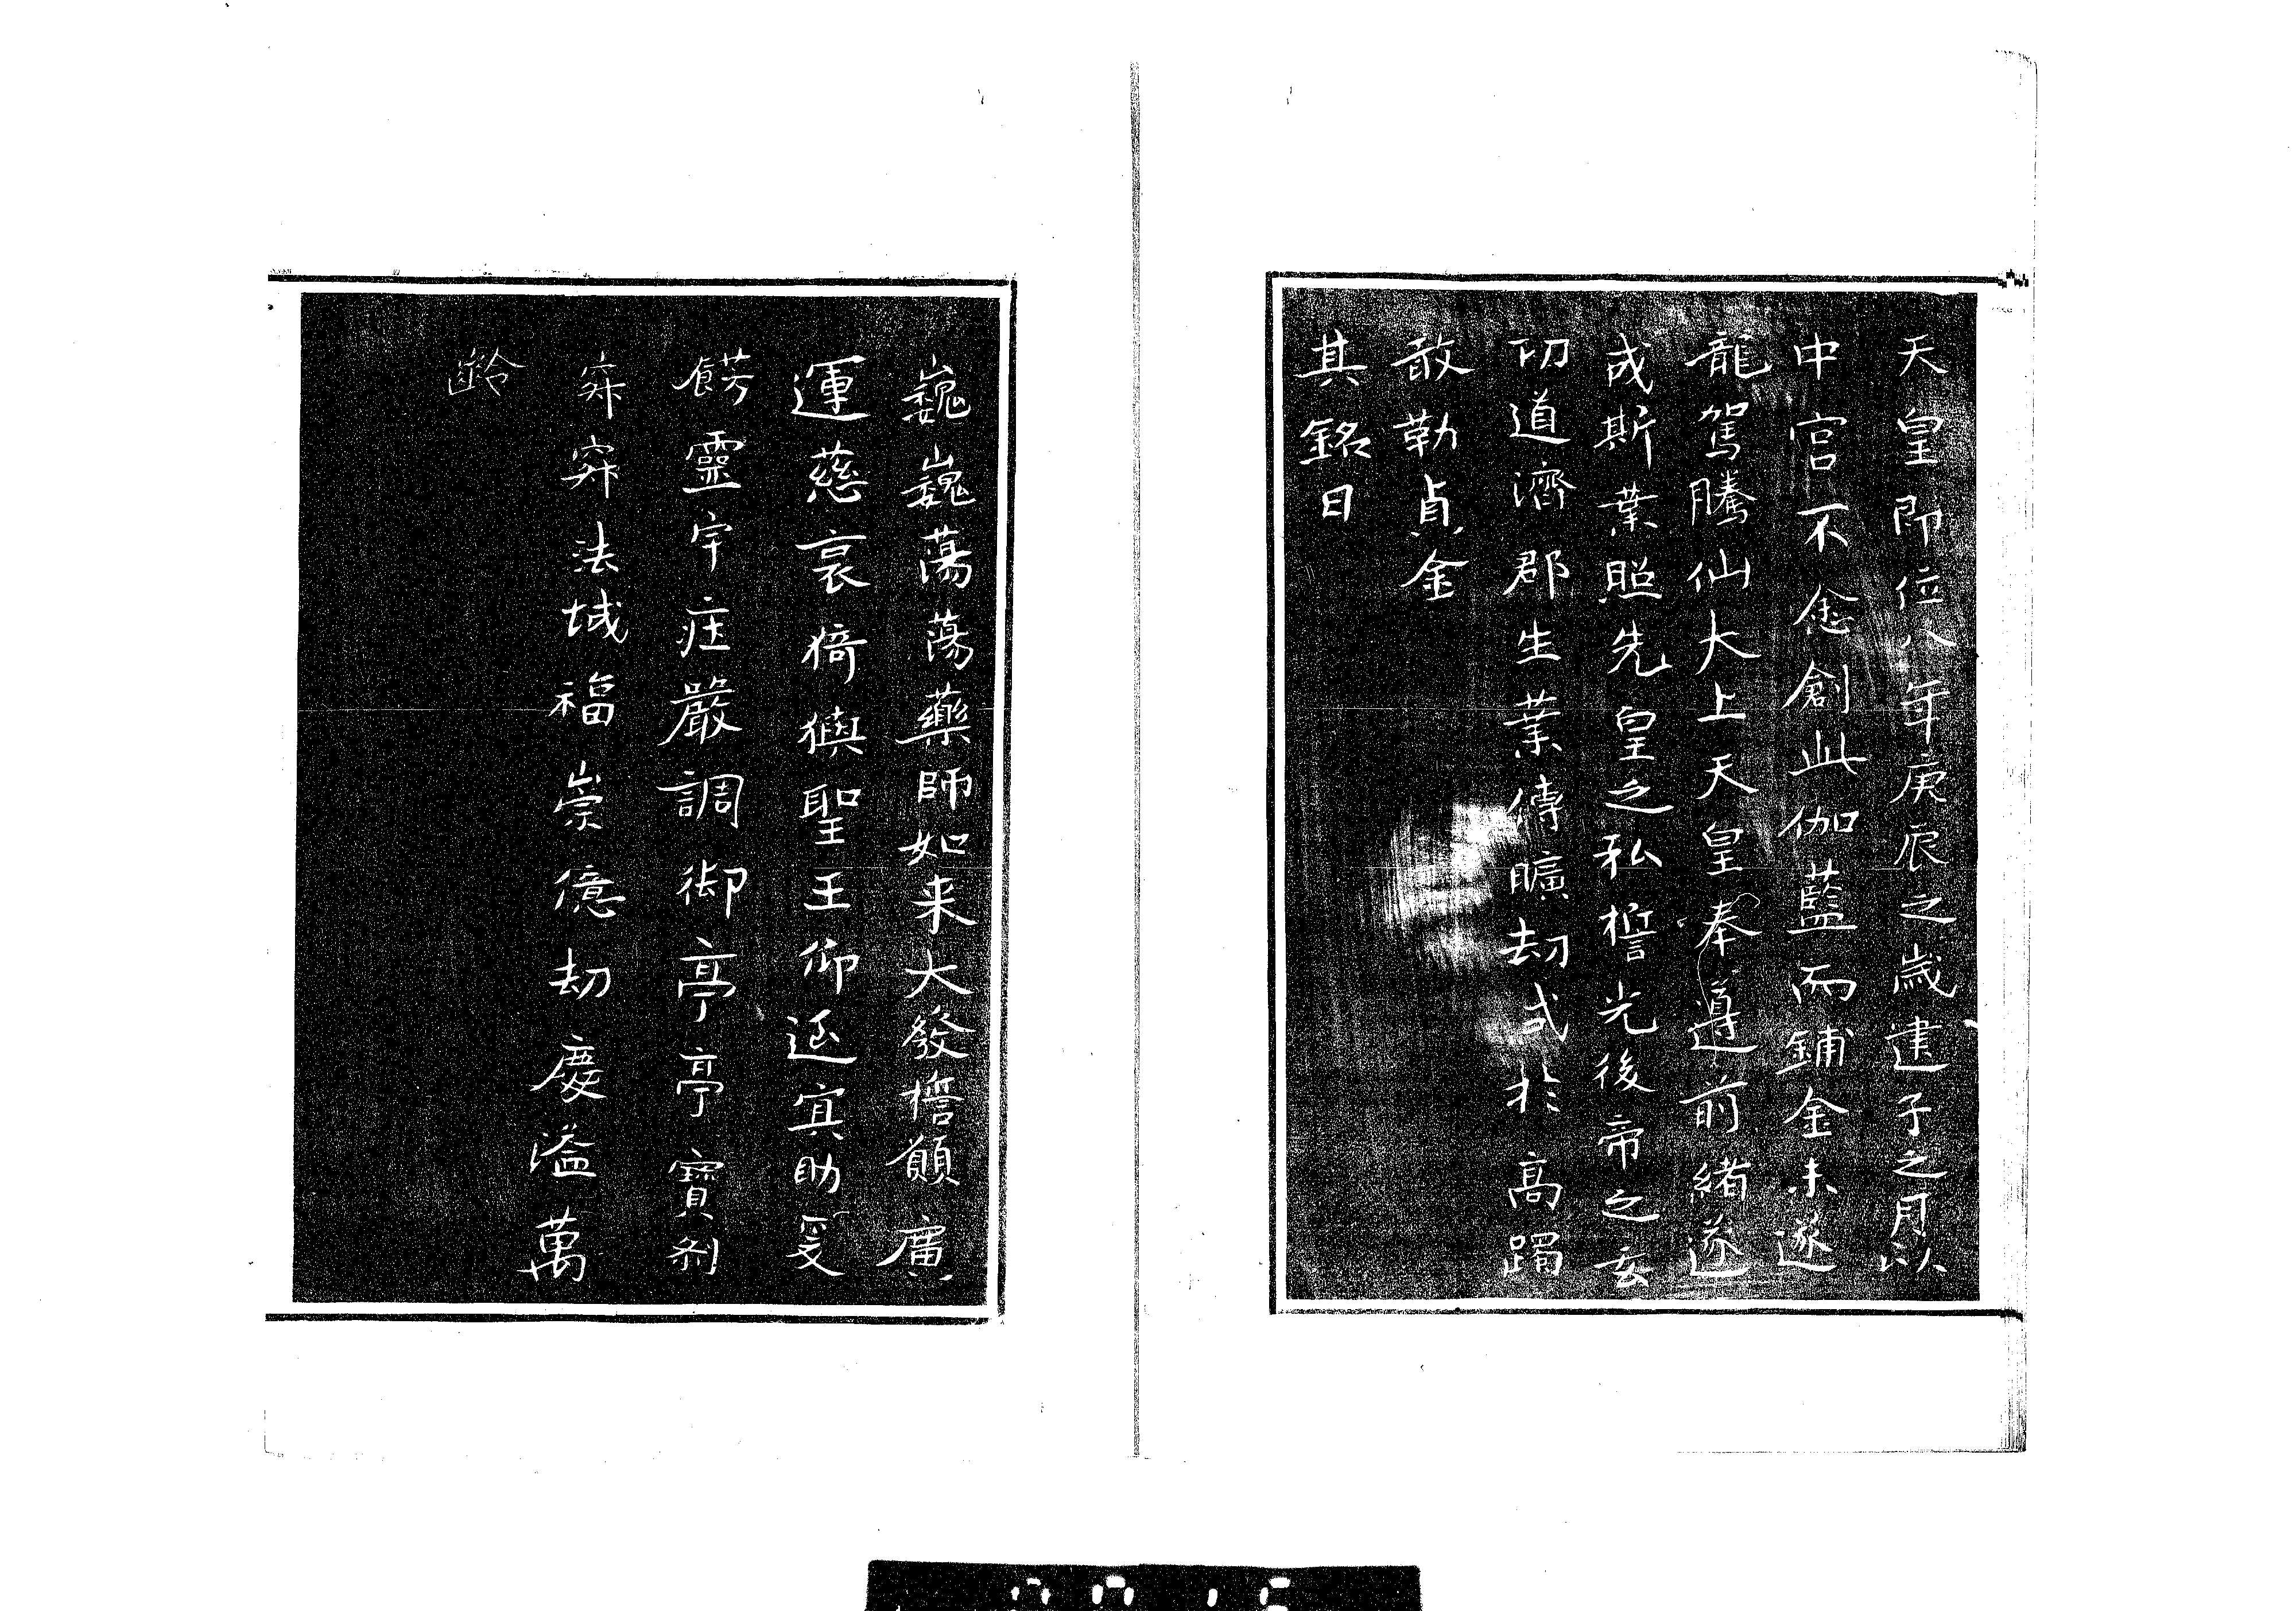 天皇即位八年庚辰之歳建子之月以
中宮不悆創此伽藍而鋪金未遂
龍駕騰仙大上天皇奉遵前緒遂
成斯業照先皇之弘誓光後帝之玄
功道濟郡生業傳曠劫式於高躅
敢勒貞金
其銘曰
巍巍蕩蕩藥師如来大發誓願廣
運慈哀猗㺞聖王仰延冥助爰
餝靈宇庄嚴調御亭亭寶刹
寂寂法城福崇億劫慶溢萬
齡